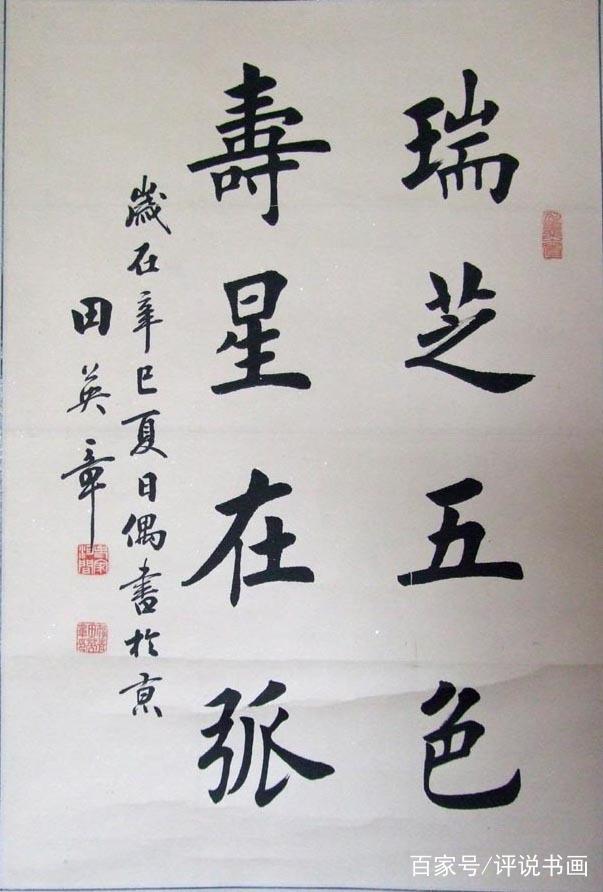 瑞芝五色
壽星在弧
歲在辛巳夏日偶書於京
田英章
百家号/评说书画